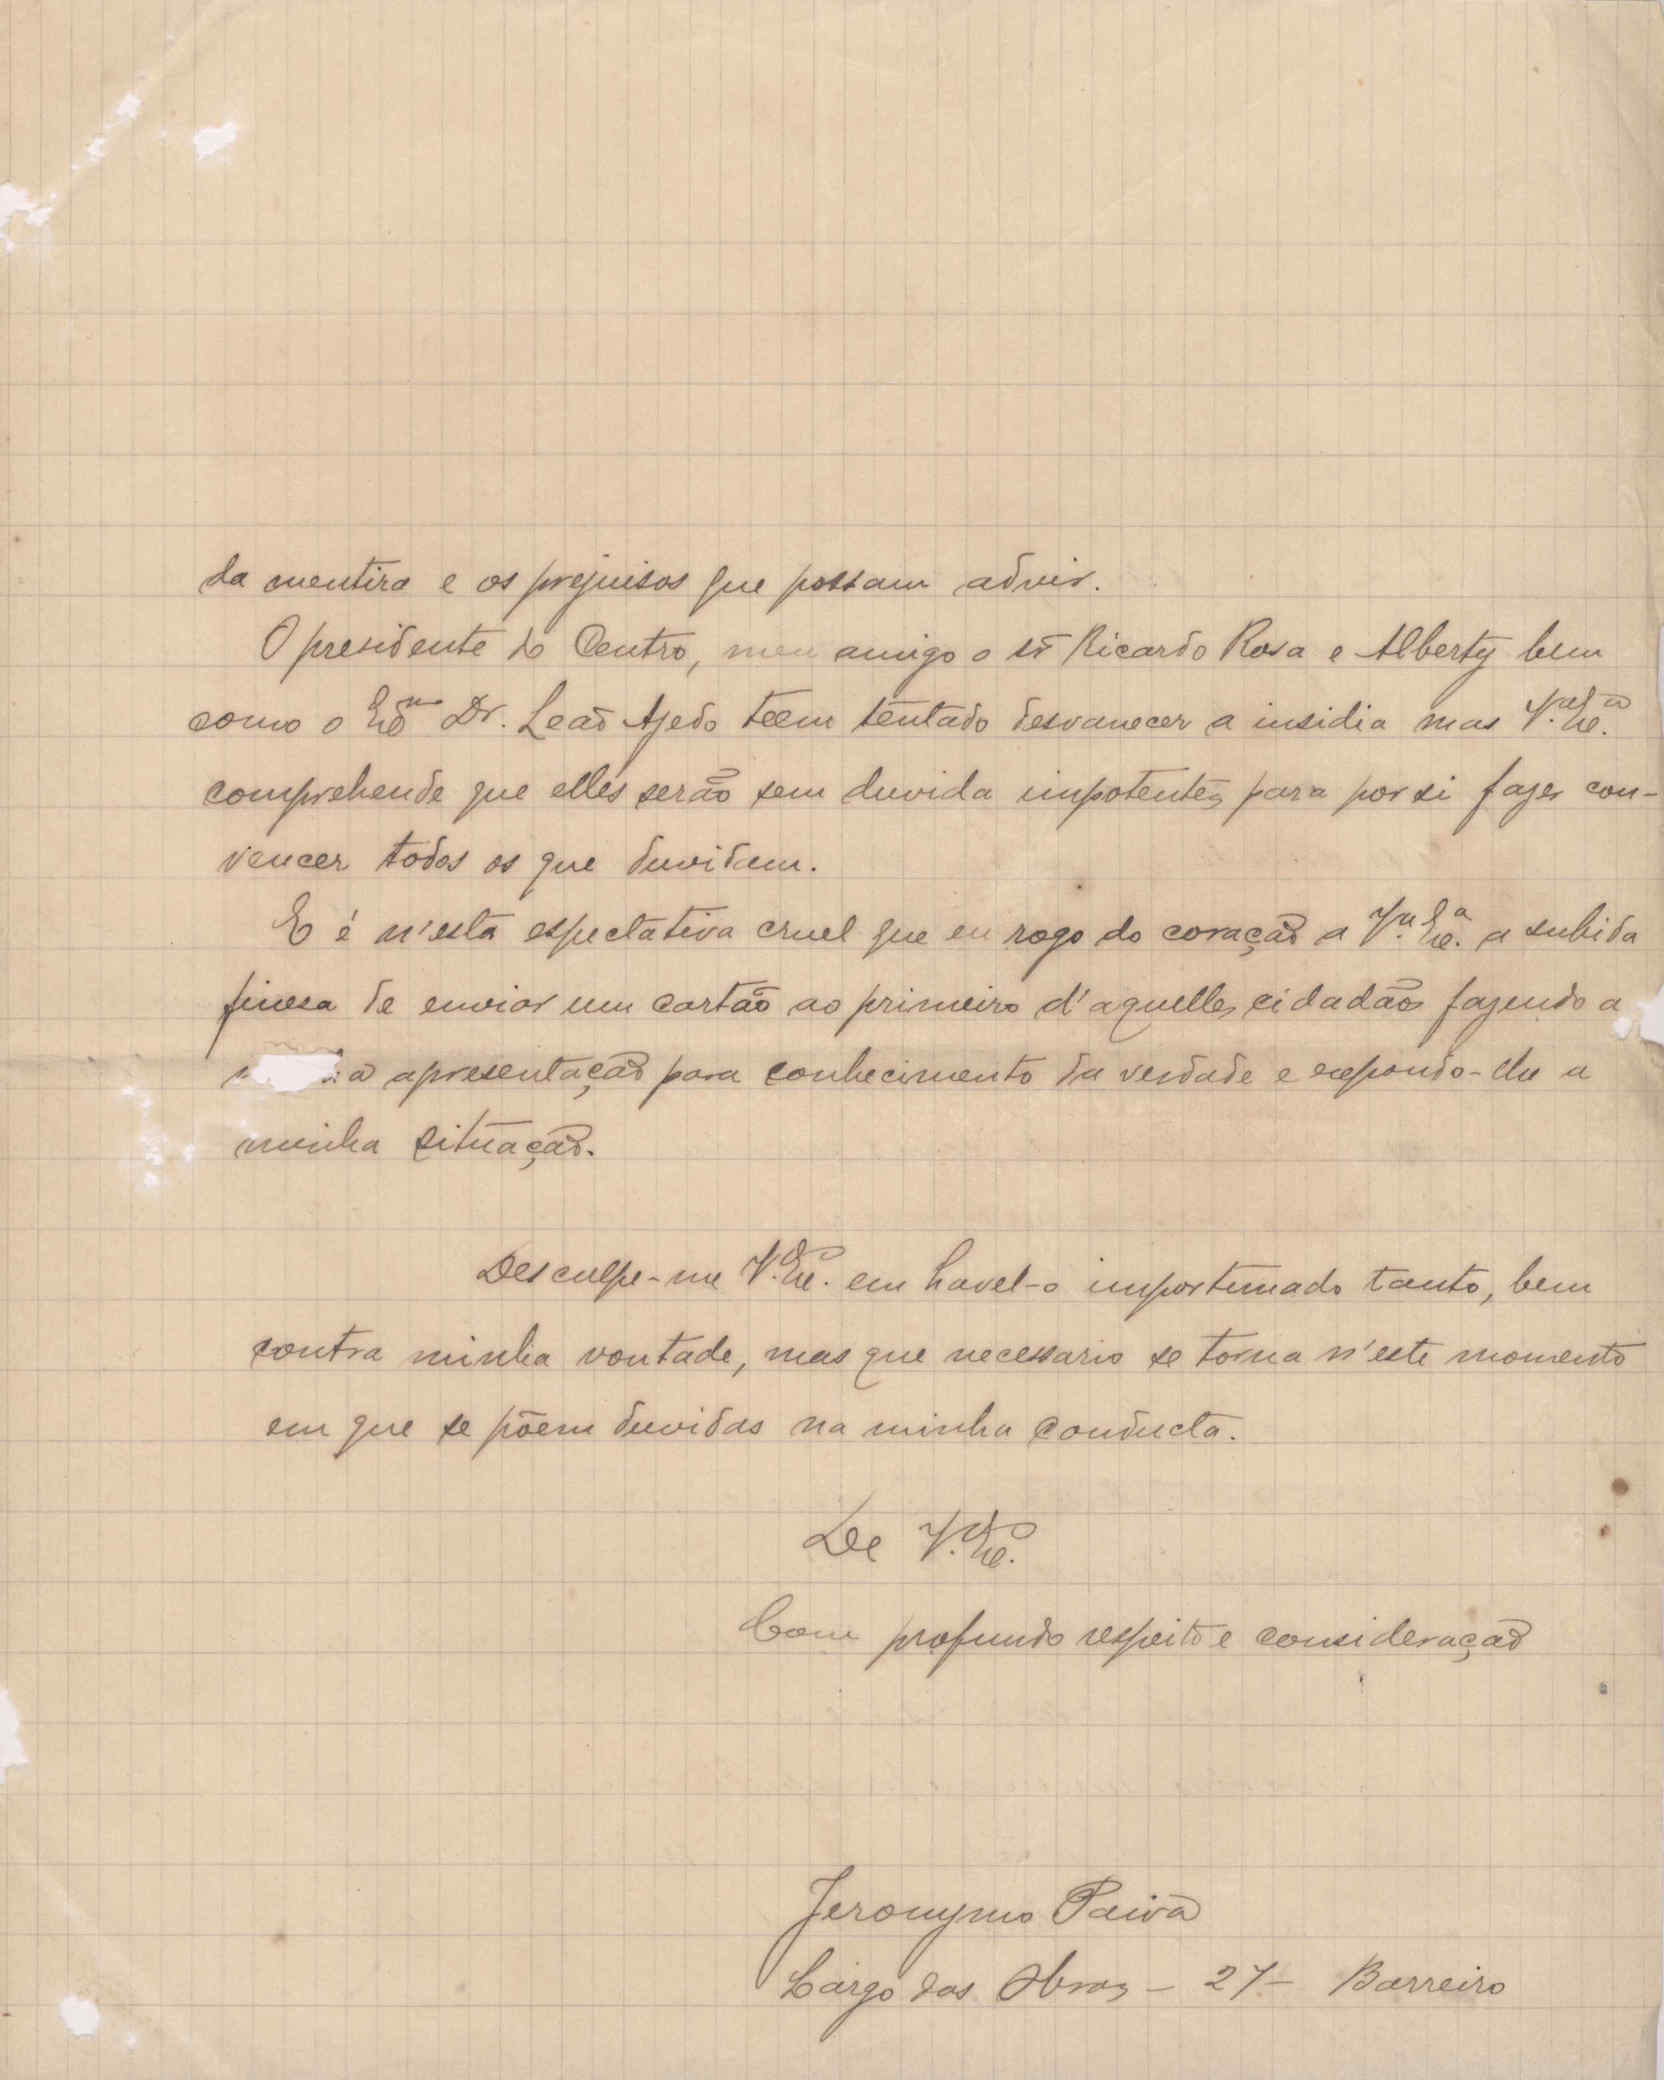 da mentira e os prejuisos que possam advir.
O presidente do Centro, meu amigo o sr Ricardo Rosa e Alberty bem
como o Exmo Dr. Leão Azedo teem tentado desvanecer a insidia mas V.ª Ex.ª
comprehende que elles serão sem duvida impotentes para por si fazer con-
vencer todos os que duvidam.
E é n'esta espectativa cruel que eu rogo do coração a V.ª Ex.ª a subida
finesa de enviar um cartão ao primeiro d'aquelles cidadãos fazendo a
apresentação para conhecimento da verdade e expondo-lhe a
minha situação.
Desculpe-me V. Ex.ª em havel-o importunado tanto, bem
contra minha vontade, mas que necessario se torna n'este momento
em que se põem duvidas na minha conducta.
De V. Ex.ª
Com profundo respeito e consideração
Jeronymo Paiva
Largo das Obras – 27 – Barreiro